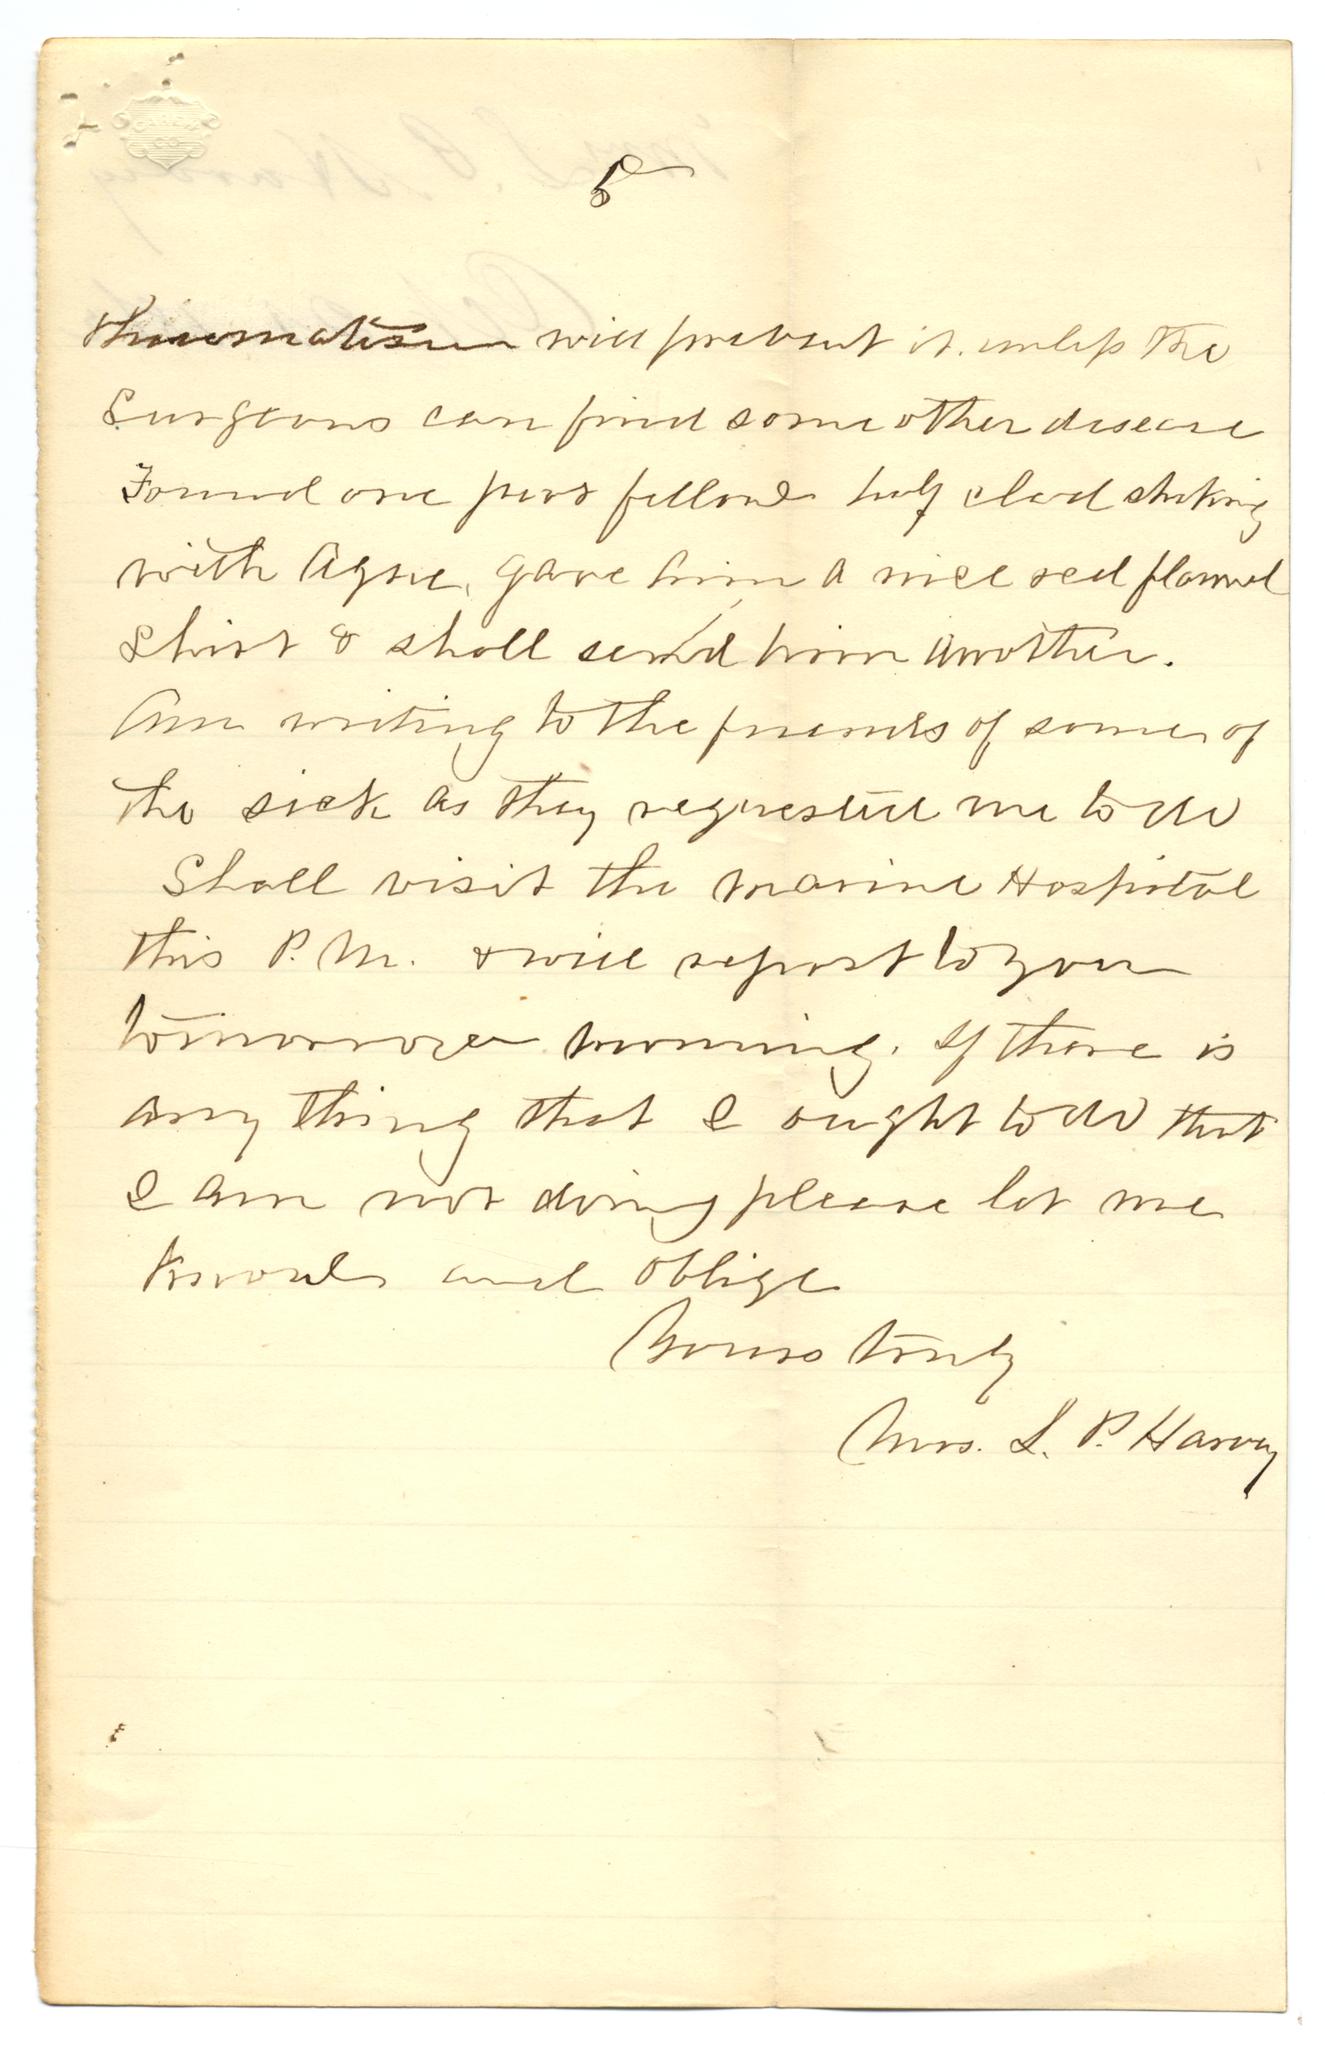 5
Rheumatism will prevent it. unless the
Surgeons can find some other disease
Found one poor fellow half clad shaking
with Ague, gave him a nice red flannel
Shirt & shall send him another.
Am writing to the friends of some of
the sick as they requested me to do
Shall visit the Marine Hospital
this P.M. & will report to you
tomorrow morning. If there is
any thing that I ought to do that
I am not doing please let me
know and oblige
Yours truly
Mrs. L. P. Harvey